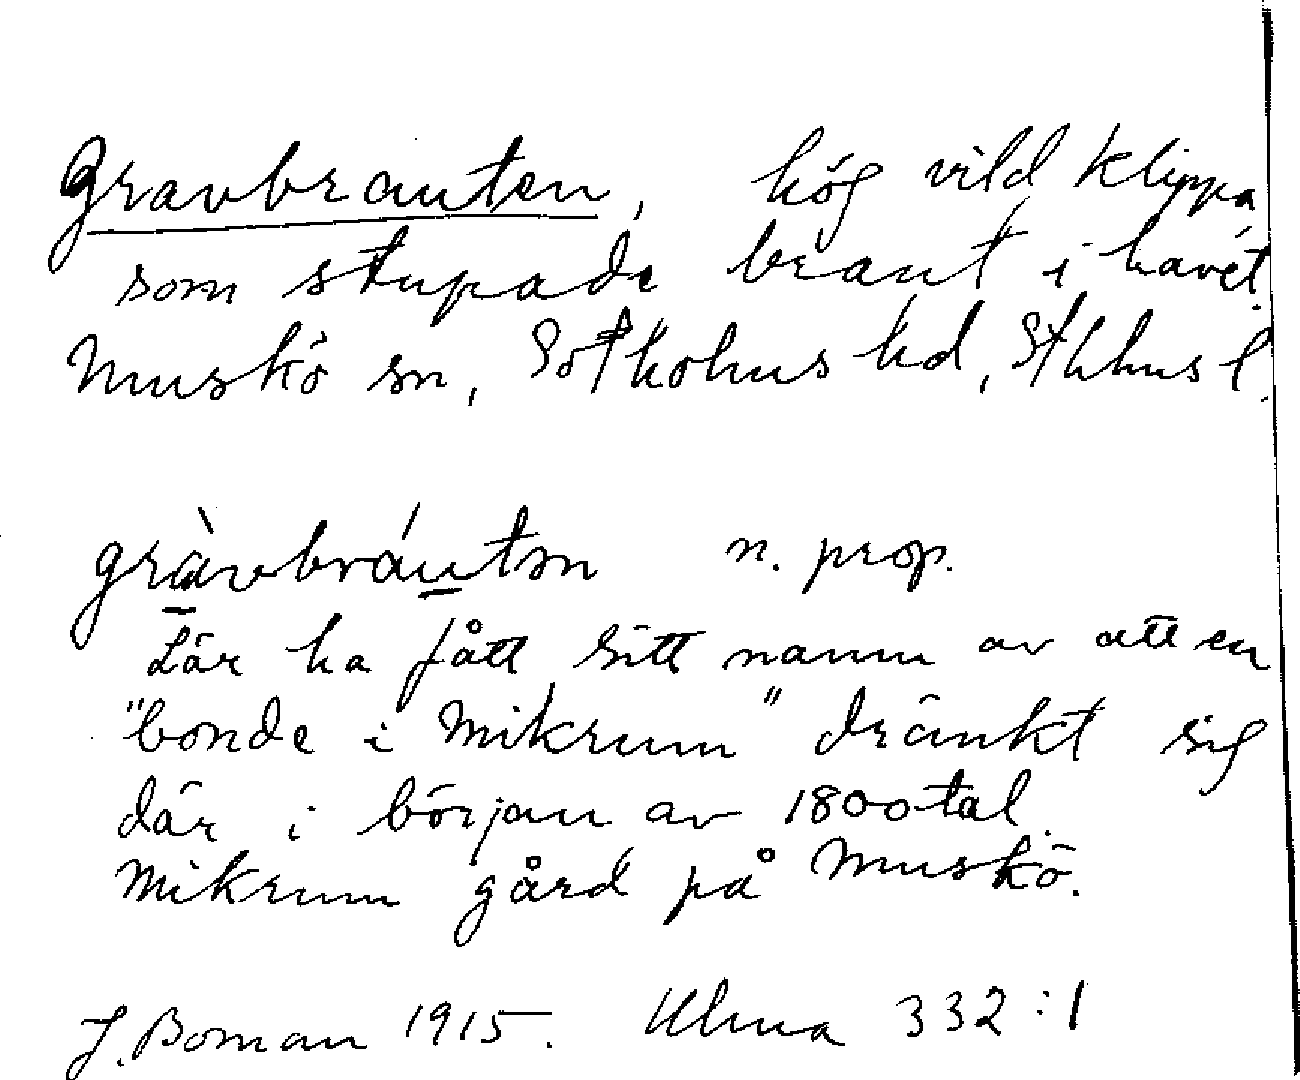 Gravbranten, hög vild klippa
som stupade brant i havet.
Muskö sn, Sotholms hd, Sthlms l.
gràvbrántɘn n. prop.
Lär ha fått sitt namn av att en
"bonde i Mikrum" dränkt sig
där i början av 1800tal.
Mikrum gård på Muskö.
J. Boman 1915. Ulma 332:1